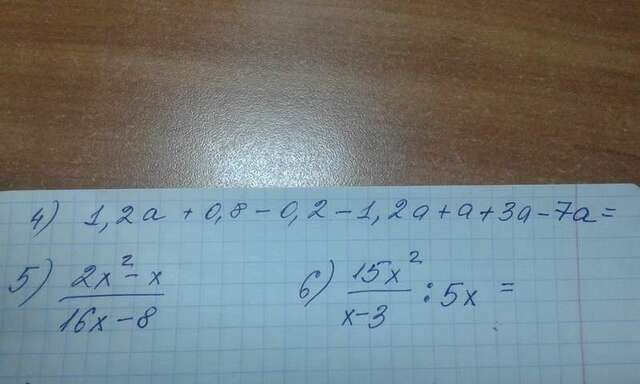 4) 1,2a + 0,8 - 0,2 - 1,2a + a + 3a - 7a =
5) 2x² - x / 16x - 8
6) 15x² / x - 3 : 5x =